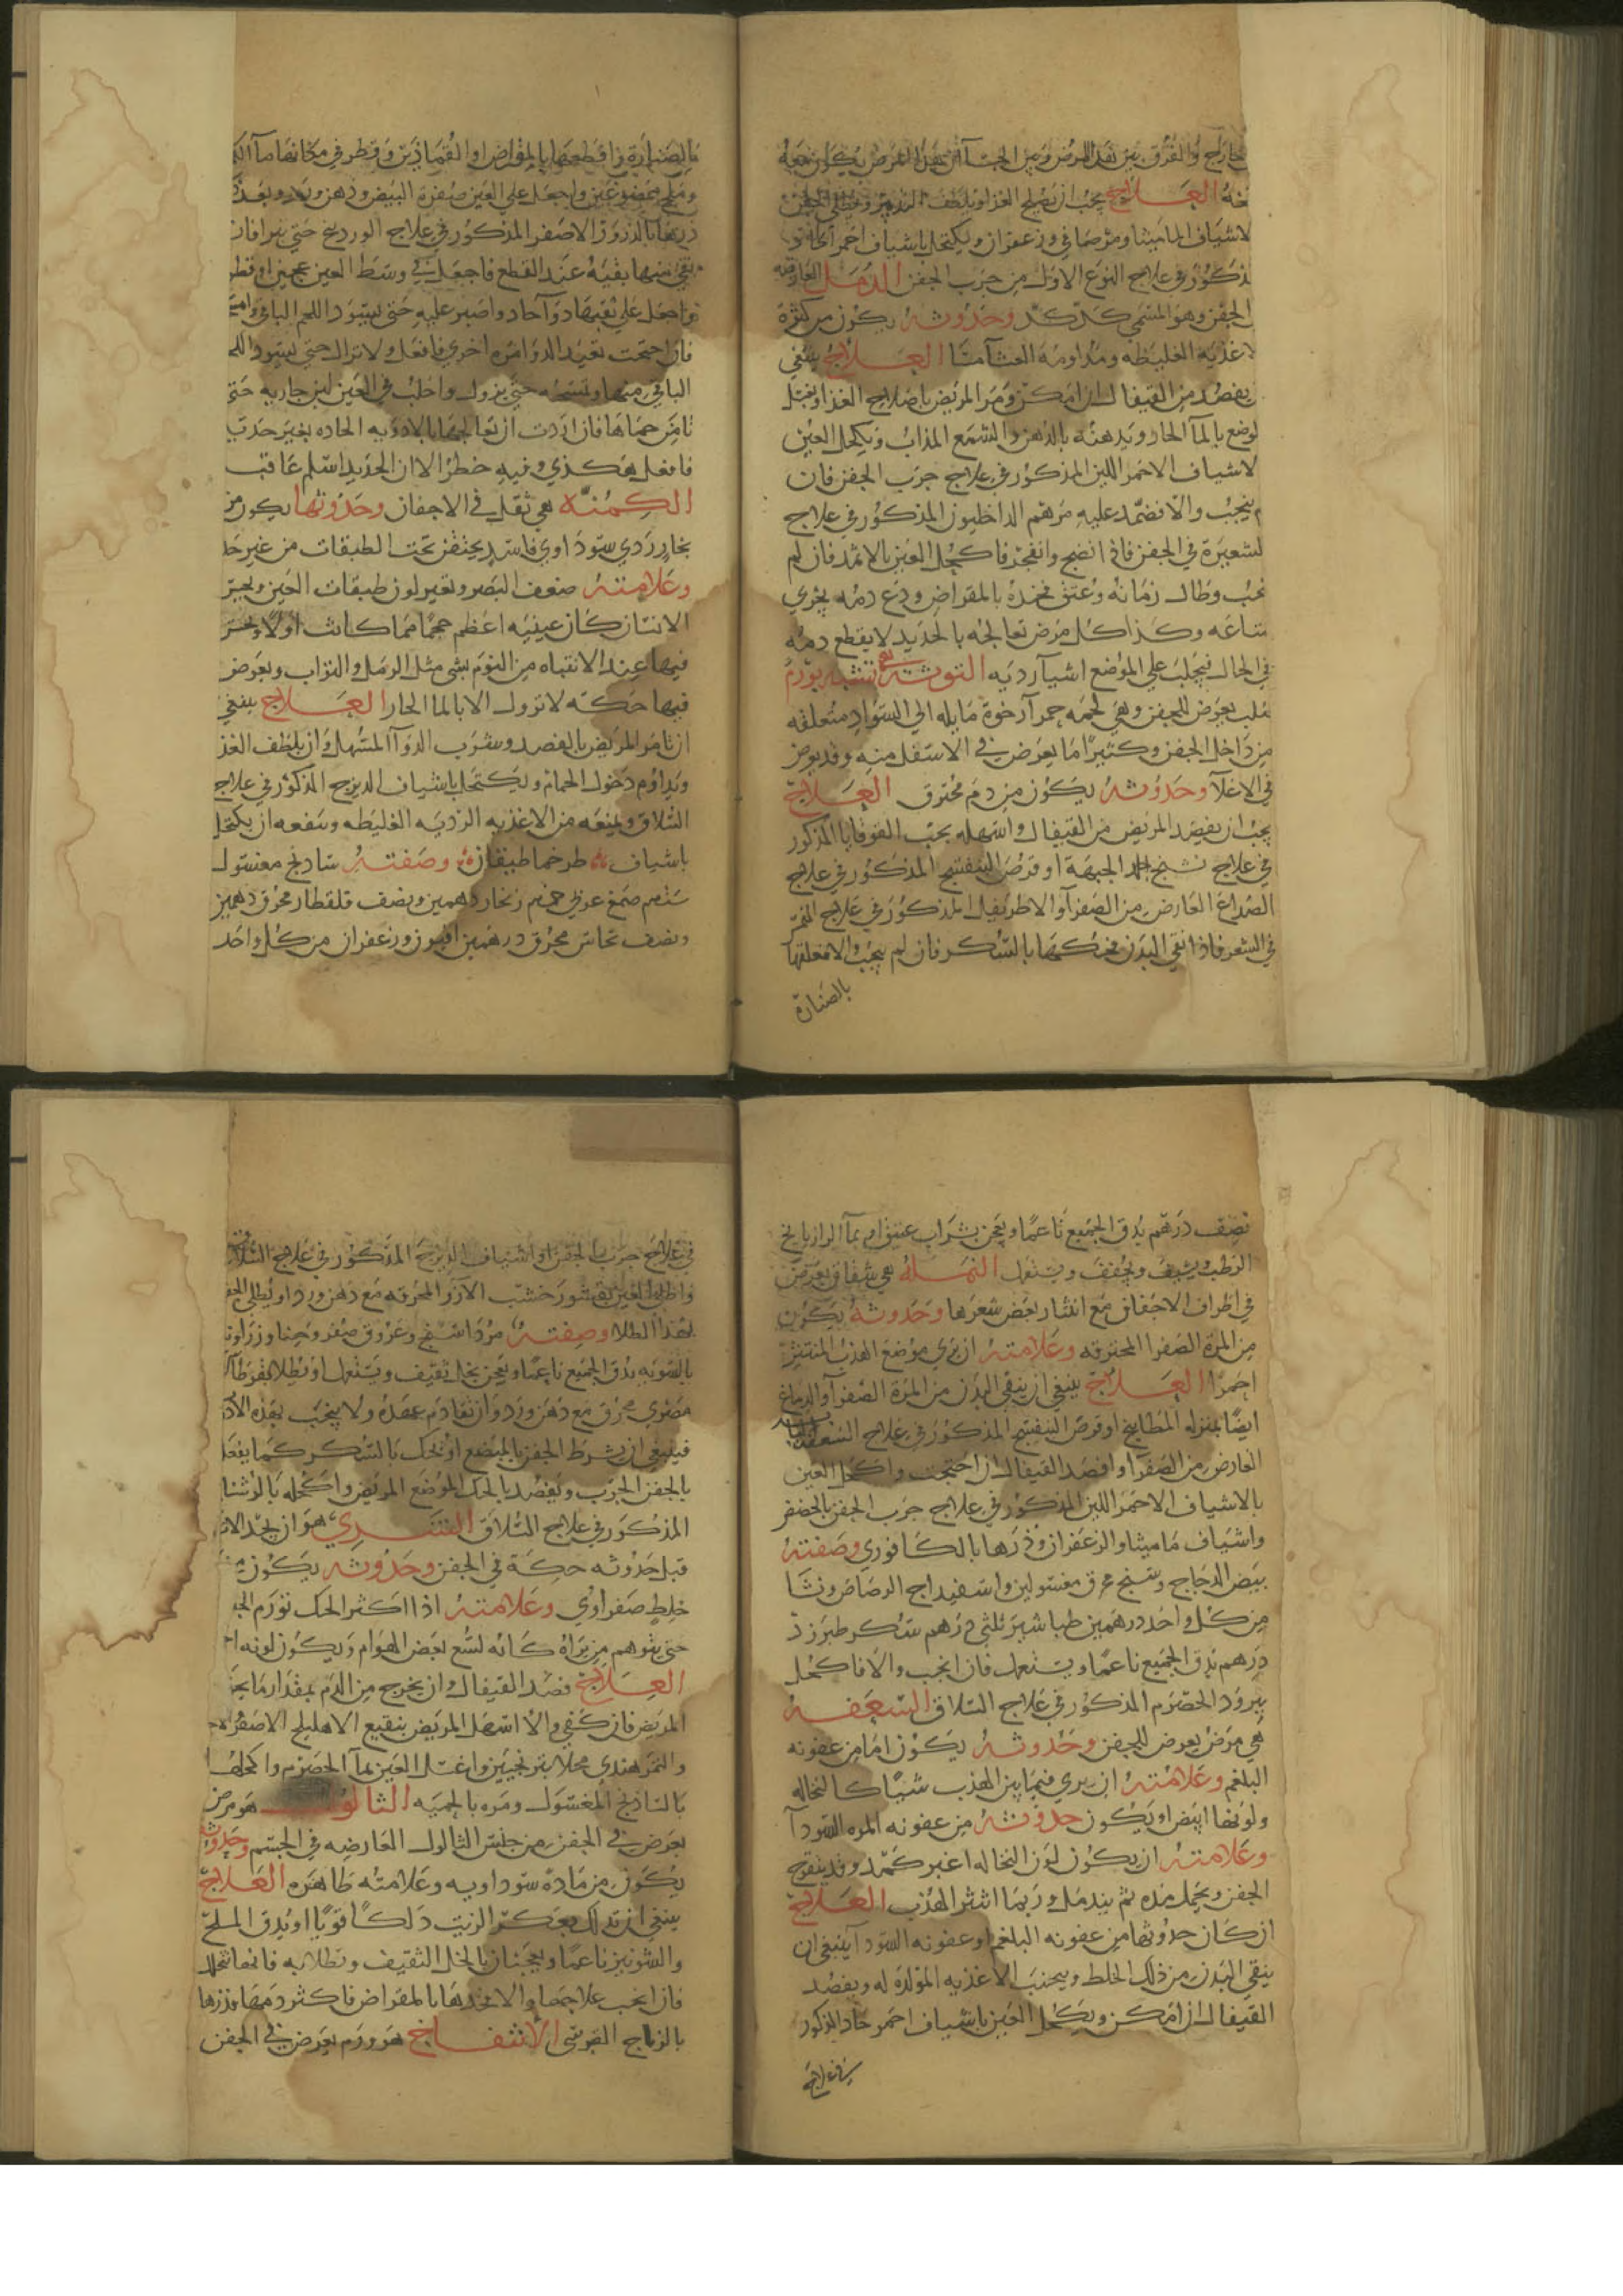 خارج والفرق بين هذا المرض وبين الجسا ان هذا المرض يكون معه
حكه العلاج يجب ان يصلح الغذا ويلطف التدبير ويطلى الجفن
لاشياف الماميثا وحضض وزعفران ويكتحل باشياف احمر حاد
ذكور في علاج النوع الاول من جرب الجفن الدمل العارض
الجفن وهو المسمى كدكد وحدوثه يكون من كثرة
لاغذيه الغليظه ومداومة العشا مسا العلاج ينبغي
يفصد من القيفال ان امكن ومر المريض باصلاح الغذا وبغسل
لوضع بالما الحار ويدهنه بالدهن والشمع المذاب ويكحل العين
لاشياف الاحمر اللين المذكور في علاج جرب الجفن فان
م ينجب والا فضمد عليه مرهم الداخليون المذكور في علاج
لشعيرة في الجفن فاذا انضج وانفجر فاكحل العين بالاثمد فان لم
نجب وطال زمانه وعتق فخذه بالمقراض ودع دمه يجري
ساعه وكذا كل مرض تعالجه بالحديد لا يقطع دمه
في الحال فيجلب على الموضع اشيا رديه التوثة هي تشبه بورم
صلب يعرض للجفن وهي لحمه حمرا رخوة مايله الى السواد متعلقه
من داخل الجفن وكثيرا ما يعرض في الاسفل منه وقد يعرض
في الاعلا وحدوثه يكون من دم محترق العلاج
يجب ان يفصد المريض من القيفال واسهله بحب القوقايا المذكور
في علاج تشنج جلد الجبهة او قرص البنفسج المذكور في علاج
الصداع العارض من الصفرا والاطريفل المذكور في علاج
في الشعر فاذا نقي البدن فحكها بالسكر فان لم ينجب والا فعلقها
بالصنارة
بالصنارة واقطعها بالمقراض او القمادين وقطر في مكانها ما الكمون
وملح ممضوغين واجعل على العين صفرة البيض ودهن ورد وبعد
ذرها بالذرور الاصفر المذكور في علاج الوردينج حتى تبرا فان
بقي منها بقيه عند القطع فاجعل في وسط العين عجين او قطن
واجعل على بقيتها دوا حاد واصبر عليه حتى يسود اللحم الباقي وامسح
فان احتجت تعيد الدوا مره اخرى فافعل ولا تزال حتى يسود اللحم
الباقي منها وتمسحه حتى يزول واحلب في العين لبن جاريه حتى
تامن حماها فان اردت ان تعالجها بالادويه الحاده بغير حديد
فافعل هكذي وفيه خطر الا ان الحديد اسلم عاقبه
الكمنة هي ثقل في الاجفان وحدوثها يكون من
بخار ردي سوداوي فاسد يحتقن تحت الطبقات من غير حد
وعلامته ضعف البصر وتغير لون طبقات العين ويحس
الانسان كان عينيه اعظم حجما مما كانت اولا ويحس
فيها عند الانتباه من النوم بشي مثل الرمل والتراب ويعرض
فيها حكه لا تزول الا بالما الحار العلاج ينبغي
ان تامر المريض بالفصد وشرب الدوا المسهل وان يلطف الغذ
ويداوم دخول الحمام ويكتحل باشياف الديزج المذكور في علاج
السلاق ويمنعه من الاغذيه الرديه الغليظه وينفعه ان يكتحل
باشياف طرخماطيقان وصفته شاذنج مغسول
سته دراهم صمغ عربي خمسه زنجار درهمين ونصف قلقطار محرق درهمين
ونصف نحاس محرق درهمين افيون وزعفران من كل واحد
نصف درهم يدق الجميع ناعما ويعجن بشراب عتيق او بما الرازيانج
الرطب ويشيف ويجفف ويستعمل النملة هي شقاق يعرض
في اطراف الاجفان مع انتثار بعض شعرها وحدوثه يكون
من المرة الصفرا المحترقه وعلامته ان يرى موضع الهدب المنتثر
احمرا العلاج ينبغي ان ينقي البدن من المرة الصفرا والدماغ
ايضا بمنزله المطابيخ او قرص البنفسج المذكور في علاج السعفة
العارض من الصفرا وافصد القيفال ان احتجت واكحل العين
بالاشياف الاحمر اللين المذكور في علاج جرب الجفن بالحضض
واشياف ماميثا والزعفران وذرها بالكافوري وصفته
بيض الدجاج وسبنج محرق مغسولين واسفيداج الرصاص ونشا
من كل واحد درهمين طباشير ثلثي درهم سكر طبرزد
درهم يدق الجميع ناعما ويستعمل فان انجب والا فاكحل
ببرود الحصرم المذكور في علاج السلاق السعفة
هي مرض يعرض للجفن وحدوثه يكون اما من عفونه
البلغم وعلامته ان يرى فيما بين الهدب شيئا كالنخاله
ولونها ابيض او يكون حدوثه من عفونه المره السودا
وعلامته ان يكون لون النخاله اغبر كمد وقد يتقرح
الجفن ويحمل مده ثم يندمل وربما انتثر الهدب العلاج
ان كان حدوثها من عفونه البلغم او عفونه السودا ينبغي ان
ينقي البدن من ذلك الخلط ويجنب الاغذيه المولدة له ويفصد
القيفال ان امكن ويكحل العين باشياف احمر حاد المذكور
في علاج
في علاج جرب الجفن او اشياف الديزج المذكور في علاج السلاق
واطلي العين بقشور خشب الارز المحرقه مع دهن ورد او يطلي الجفن
بهذا الطلا وصفته مرداسنج وعروق صفر وحنا وزراوند
بالسويه يدق الجميع ناعما ويعجن بخل ثقيف ويستعمل او يطلا بقرطاس
مصري محرق مع دهن ورد وان تقادم عهده ولا ينجب بهذه الادويه
فينبغي ان يشرط الجفن بالمبضع او يحك بالسكر كما يفعل
بالجفن الجرب ويقصد بالحك الموضع المريض واكحله بالروشنايا
المذكور في علاج السلاق الشري هو ان يجد الانسان
قبل حدوثه حكة في الجفن وحدوثه يكون من
خلط صفراوي وعلامته اذا اكثر الحك تورم الجفن
حتى يتوهم من يراه كانه لسع بعض الهوام ويكون لونه احمر
العلاج فصد القيفال وان يخرج من الدم بمقدار ما يحتمل
المريض فان كفى والا اسهل المريض بنقيع الاهليلج الاصفر
والتمر هندي محلا بترنجبين واغسل العين بما الحصرم واكحلها
بالشاذنج المغسول ومره بالحميه الثالول هو مرض
يعرض في الجفن من جنس الثالول العارضه في الجسم وحدوثه
يكون من مادة سوداويه وعلامته ظاهره العلاج
ينبغي ان تدلك بعكر الزيت دلكا قويا او يدق الملح
والشونيز ناعما ويعجنان بالخل الثقيف وتطلا به فانها تنحل
فان انجب علاجها والا خذها بالمقراض فاكثر دمها وذرها
بالزاج القبرسي الانتفاخ هو ورم يعرض في الجفن